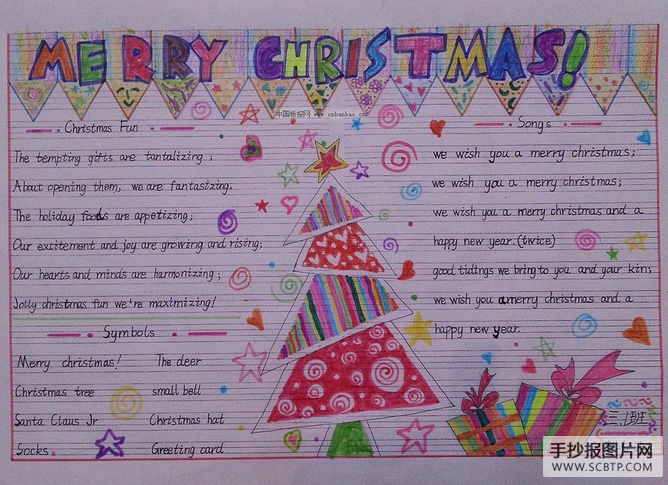 MERRY CHRISTMAS!
中国板报网 www.cnbanbao.cn
Christmas Fun
The tempting gifts are tantalizing;
About opening them, we are fantasizing.
The holiday foods are appetizing;
Our excitement and joy are growing and rising;
Our hearts and minds are harmonizing;
Jolly christmas fun we're maximizing!
Symbols
Merry christmas! The deer
Christmas tree small bell
Santa Claus Jr Christmas hat
Socks. Greeting card
Songs
we wish you a merry christmas;
we wish you a merry christmas;
we wish you a merry christmas and a
happy new year.(twice)
good tidings we bring to you and your kin;
we wish you a merry christmas and a
happy new year.
三.1班
手抄报图片网
WWW.SCBTP.COM